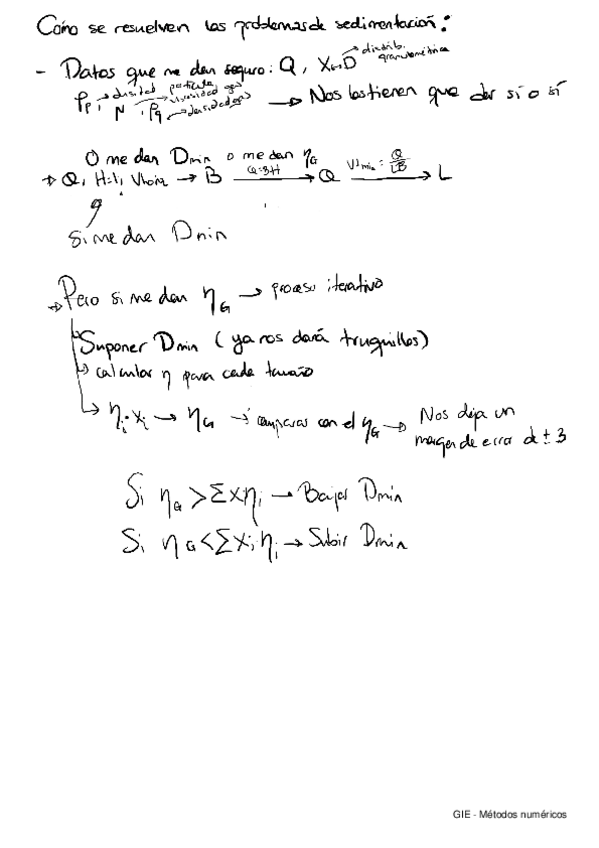 Cómo se resuelven los problemas de sedimentación:
- Datos que me dan seguro: Q, X↔D → distrib. granulométrica
ρp → densidad partícula, μ → viscosidad gas, ρg → densidad gas → Nos las tienen que dar sí o sí
O me dan Dmin o me dan ηG
→ Q, H=1, → B → Q → L
Si me dan Dmin
→ Pero si me dan ηG → proceso iterativo
Suponer Dmin (ya nos dará truquillos)
→ calcular η para cada tamaño
→ ηi·xi → ηG → comparar con el ηG → Nos deja un
margen de error de ± 3
Si ηG > Σxηi → Bajar Dmin
Si ηG < Σxi ηi → Subir Dmin
GIE - Métodos numéricos